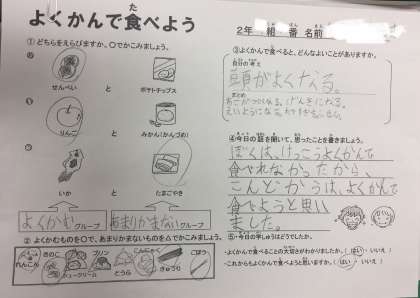 よくかんで食べよう
2年 組 番 名前
①どちらをえらびますか。○でかこみましょう。
せんべい と ポテトチップス
りんご と みかん(かんづめ)
いか と たまごやき
よくかむグループ
あまりかまないグループ
②よくかむものを○で、あまりかまないものを△でかこみましょう。
れんこん
きのこ
シュークリーム
プリン
とうふ
きゅうり
ごぼう
③よくかんで食べると、どんなよいことがありますか。
自分の考え
頭がよくなる。
まとめ
④今日の話を聞いて、思ったことを書きましょう。
ぼくは、けっこうよくかんで
食べれなかったから、
こんどからは、よくかんで
食べようと思い
ました。
⑤今日の学しゅうはどうでしたか。
・よくかんで食べることの大切さがわかりましたか。(はい・いいえ)
・これからもよくかんで食べようと思いますか。(はい・いいえ)